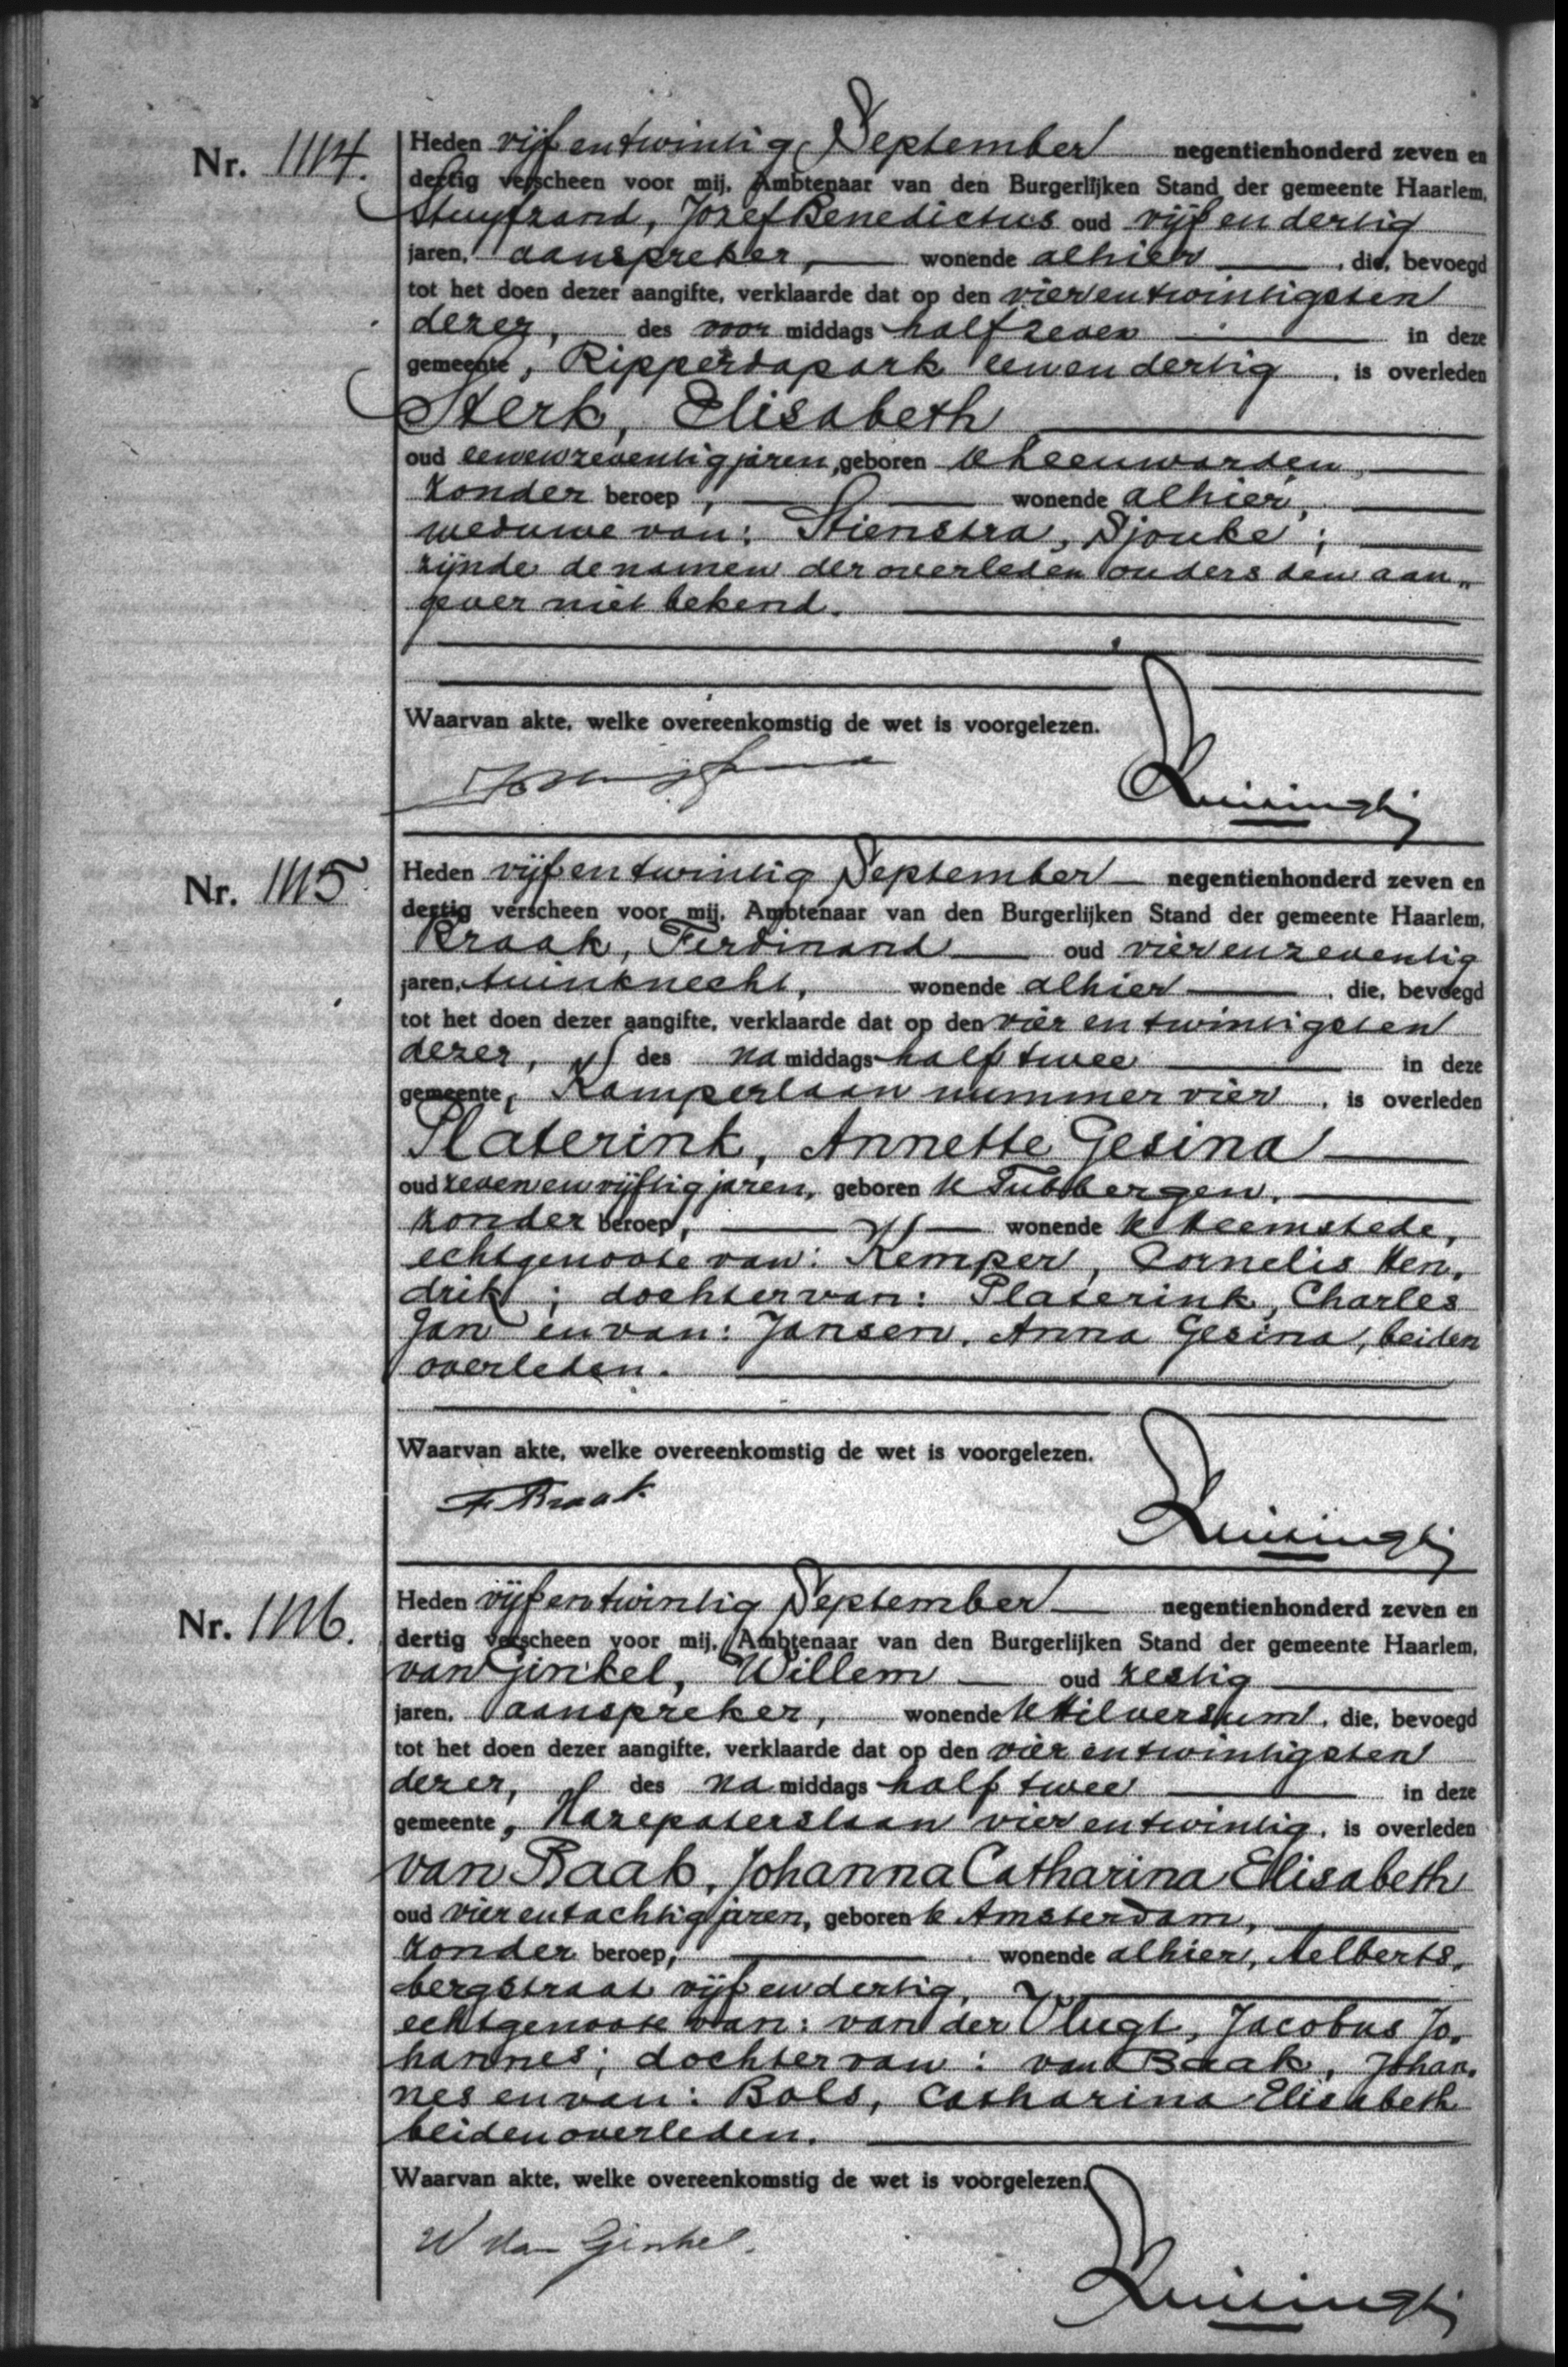 Nr. 1114.
Heden vijf en twintig September negentienhonderd zeven en
dertig verscheen voor mij, Ambtenaar van den Burgerlijken Stand der gemeente Haarlem,
Stuyfzand, Jozef Benedictus oud vijf en dertig
jaren, aanspreker, wonende alhier, die, bevoegd
tot het doen dezer aangifte, verklaarde dat op den vier en twintigsten
dezer, des voor middags half zeven in deze
gemeente, Ripperdapark een en dertig, is overleden
Sterk, Elisabeth
oud een en zeventig jaren, geboren te Leeuwarden,
zonder beroep, wonende alhier,
weduwe van: Stienstra, Sjouke;
zijnde de namen der overleden ouders den aan„
gever niet bekend.
Waarvan akte, welke overeenkomstig de wet is voorgelezen.
Nr. 1115
Heden vijf en twintig September negentienhonderd zeven en
dertig verscheen voor mij, Ambtenaar van den Burgerlijken Stand der gemeente Haarlem,
Braak, Ferdinand oud vier en zeventig
jaren, tuinknecht, wonende alhier, die, bevoegd
tot het doen dezer aangifte, verklaarde dat op den vier en twintigsten
dezer, des na middags half twee in deze
gemeente, Kamperlaan nummer vier, is overleden
Platerink, Annette Gesina
oud zeven en vijftig jaren, geboren te Tubbergen,
zonder beroep, wonende te Heemstede,
echtgenoote van: Kemper, Cornelis Hen„
drik; dochter van: Platerink, Charles
Jan en van: Jansen, Anna Gesina, beiden
overleden.
Waarvan akte, welke overeenkomstig de wet is voorgelezen.
F. Braak
Nr. 1116.
Heden vijf en twintig September negentienhonderd zeven en
dertig verscheen voor mij, Ambtenaar van den Burgerlijken Stand der gemeente Haarlem,
van Ginkel, Willem oud zestig
jaren, aanspreker, wonende te Hilversum, die, bevoegd
tot het doen dezer aangifte, verklaarde dat op den vier en twintigsten
dezer, des na middags half twee in deze
gemeente, Hazepaterslaan vier en twintig, is overleden
van Baak, Johanna Catharina Elisabeth
oud vier en tachtig jaren, geboren te Amsterdam,
zonder beroep, wonende alhier, Aelberts„
bergstraat vijf en dertig,
echtgenoote van: van der Vlugt, Jacobus Jo„
hannes; dochter van: van Baak, Johan„
nes en van: Bols, Catharina Elisabeth
beiden overleden.
Waarvan akte, welke overeenkomstig de wet is voorgelezen.
W van Ginkel.